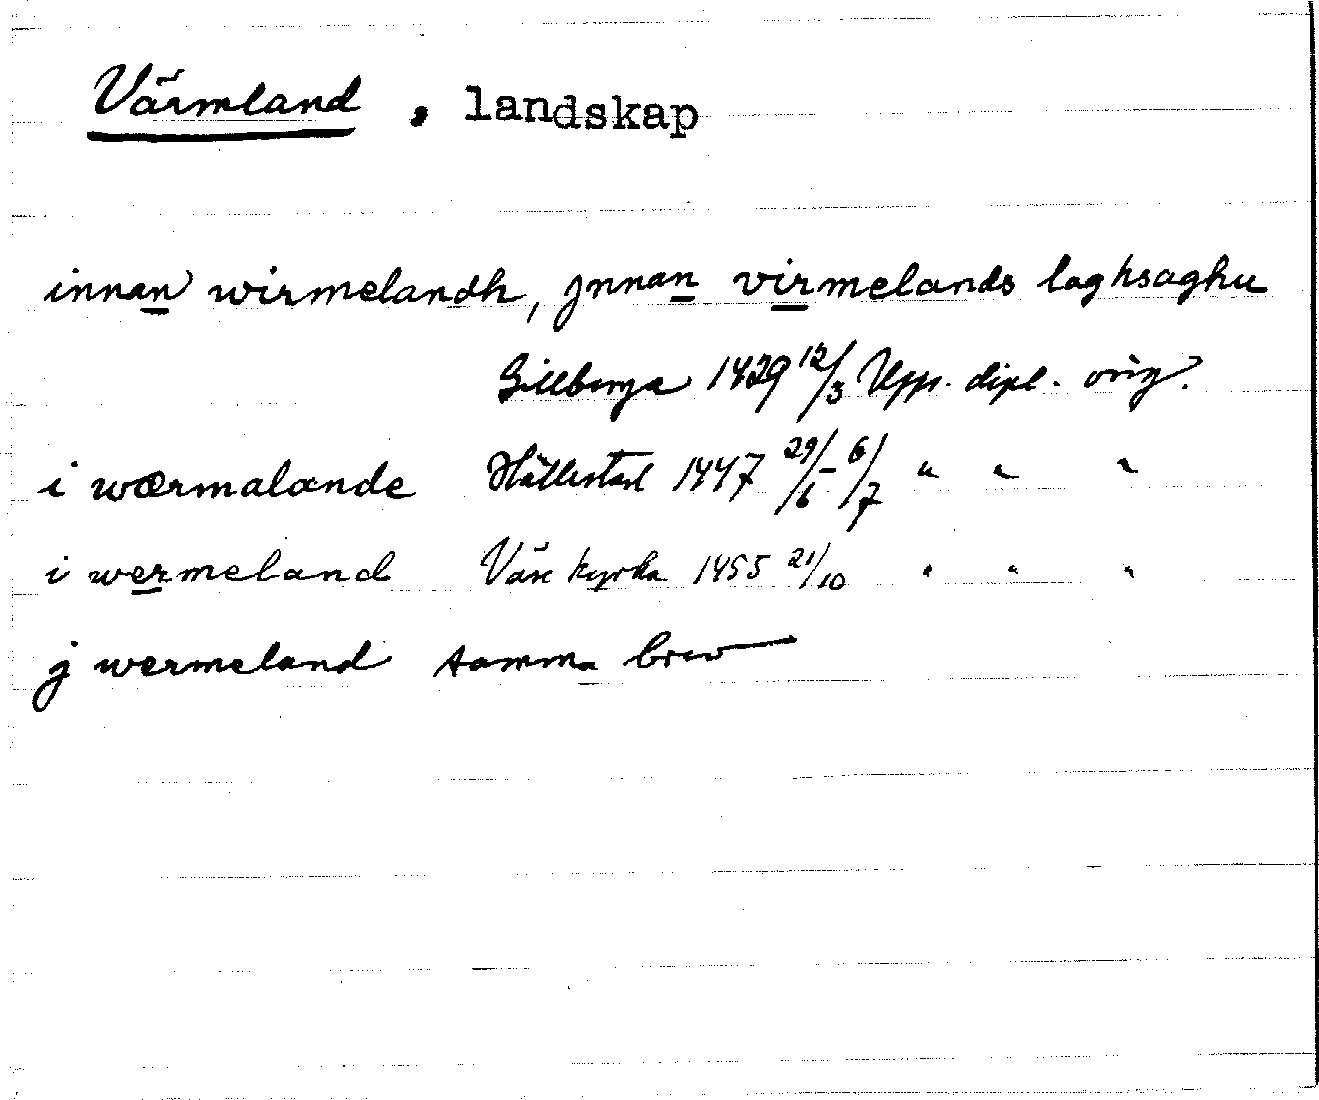 Värmland , landskap
innan wirmelandh, jnnan virmelands laghsaghu
Gillberga 1429 12/3 Upps. dipl. orig.
i wærmalande Hällestad 1447 29/6 - 6/7 " " "
i wermeland Väse kyrka 1455 21/10 " " "
j wermeland samma brev